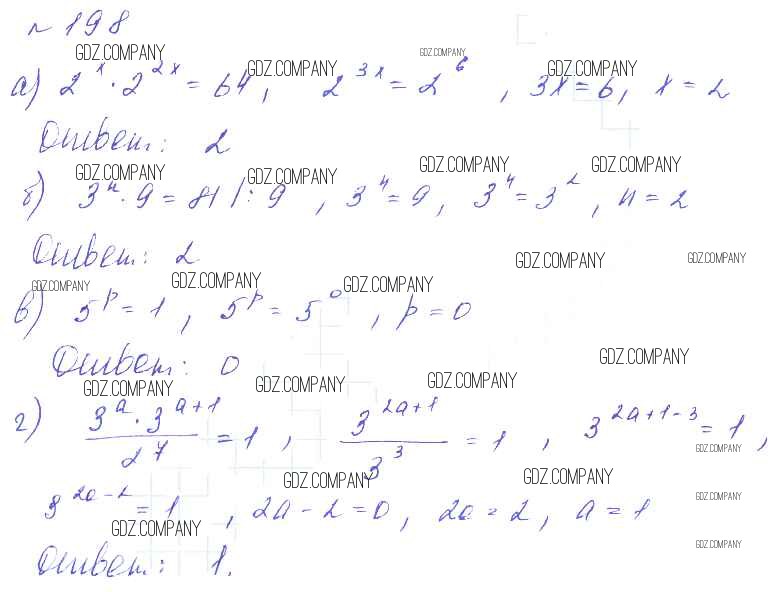 № 198
GDZ.COMPANY GDZ.COMPANY
а) 2^x · 2^2x = 64, 2^3x = 2^6, 3x = 6, x = 2
GDZ.COMPANY GDZ.COMPANY
Ответ: 2
GDZ.COMPANY GDZ.COMPANY GDZ.COMPANY GDZ.COMPANY
б) 3^n · 9 = 81 | : 9, 3^n = 9, 3^n = 3^2, n = 2
Ответ: 2
GDZ.COMPANY GDZ.COMPANY
GDZ.COMPANY GDZ.COMPANY GDZ.COMPANY
в) 5^p = 1, 5^p = 5^0, p = 0
Ответ: 0
GDZ.COMPANY
GDZ.COMPANY GDZ.COMPANY GDZ.COMPANY
г) 3^a · 3^a+1 / 27 = 1, 3^2a+1 / 3^3 = 1, 3^2a+1-3 = 1,
GDZ.COMPANY
GDZ.COMPANY GDZ.COMPANY
3^2a-2 = 1, 2a - 2 = 0, 2a = 2, a = 1
GDZ.COMPANY
GDZ.COMPANY
GDZ.COMPANY
Ответ: 1.